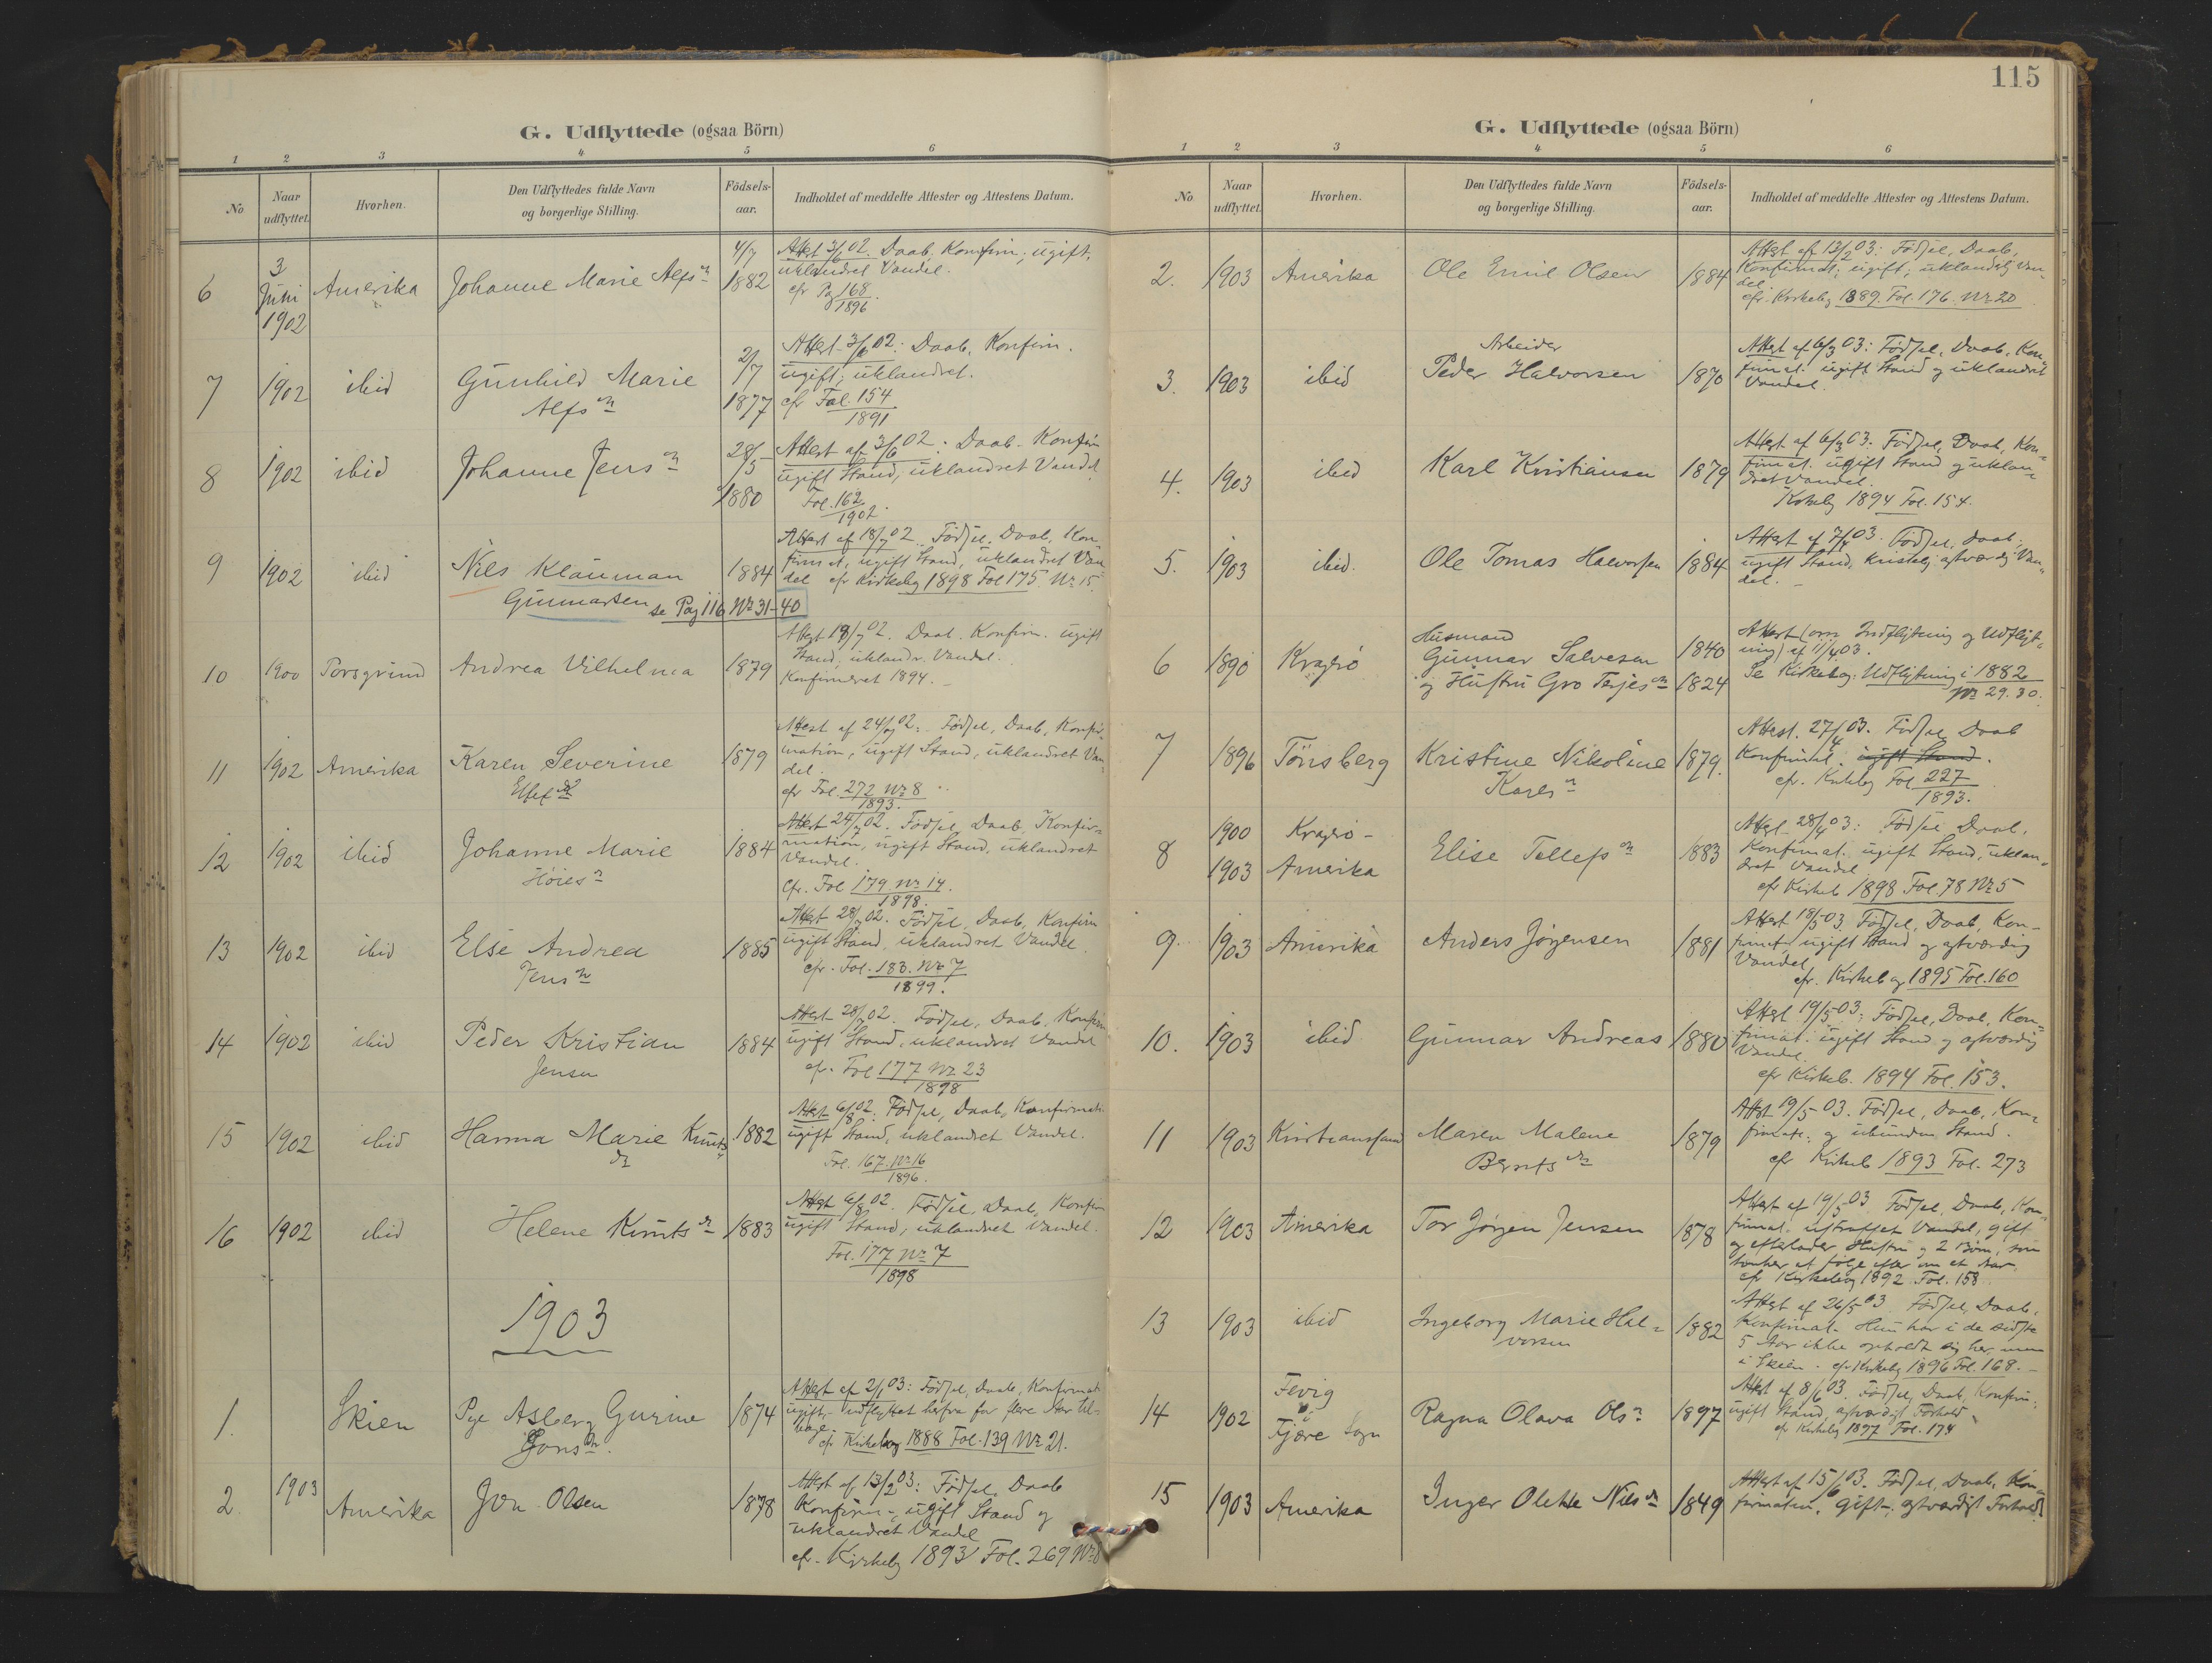 G. Udflyttede (ogsaa Börn)
1 2 3 4 5 6
No
Naar udflyttet.
Hvorhen.
Den Udflyttedes fulde Navn
og borgerlige Stilling.
Födsels-
aar.
Indholdet af meddelte Attester og Attestens Datum.
6 3 Juni 1902 Amerika Johanne Marie Alfsn 4/7 1882
Attest 3/6 02. Daab, Konfirm; ugift,
uklandret Vandel.
cfr Pag 168
1896
7 1902 ibid Gunhild Marie
Alfsn
2/7 1877
Attest 3/6 02: Daab, Konfirm.
ugift; uklandret.
cfr Fol. 154
1891
8 1902 ibid Johanne Jensn 28/5 1880
Attest af 3/6 02: Daab. Konfirm
ugift Stand, uklandret Vandel
Fol. 162
1902.
9 1902 ibid Nils Klauman
Gunnarsen
1884
se Pag 116 No 31-40
Attest af 18/7 02. Födsel, Daab, Kon-
firmat, ugift Stand, uklandret Van-
del cfr Kirkebg 1898 Fol 175. No 15.
10 1900 Porsgrund Andrea Vilhelma 1879
Attest 19/7 02. Daab. Konfirm. ugift
Stand, uklandr. Vandel.
Konfirmeret 1894.
11 1902 Amerika Karen Severine
1879
Attest af 24/7 02: Födsel, Daab, Konfir-
mation, ugift Stand, uklandret Van-
del.
cfr Fol. 272 No 8
1893.
12 1902 ibid Johanne Marie
Höiesn
1884
Attest 24/7 02. Födsel Daab, Konfir-
mation, ugift Stand, uklandret
Vandel.
Cfr. Fol 179. No 14.
1898.
13 1902 ibid Else Andrea
Jensn
1885
Attest 28/7 02. Födsel, Daab, Konfirm
ugift Stand, uklandret Vandel.
cfr. Fol. 183. No 7
1899.
14 1902 ibid Peder Kristian
Jensen
1884
Attest 28/7 02. Födsel, Daab, Konfirm
ugift Stand, uklandret Vandel
cfr. Fol 177 No 23
1898
15 1902 ibid Hanna Marie Knuts
dr
1882
Attest 6/8 02. Födsel, Daab, Konfirmat.
ugift Stand, uklandret Vandel.
Fol. 167. No 16
1896.
16 1902 ibid Helene Knutsdr 1883
Attest 6/8 02. Födsel, Daab, Konfirm
ugift Stand, uklandret Vandel.
Fol. 177 No 7
1898
1903
1. Skien Asberg Gurine
1874
Attest af 2/1 03: Födsel, Daab, Konfirmat
ugift, udflyttet herfra for flere Aar til-
bage.
cfr Kirkebog 1888 Fol. 139 No 21.
2. 1903 Amerika Jon Olsen 1878
Attest af 13/2 03: Födsel, Daab
Konfirm-, ugift Stand og
uklandret Vandel
cfr. Kirkebg 1893 Fol. 269 No 8
115
G. Udflyttede (ogsaa Börn)
1 2 3 4 5 6
No
Naar udflyttet.
Hvorhen.
Den Udflyttedes fulde Navn
og borgerlige Stilling.
Födsels-
aar.
Indholdet af meddelte Attester og Attestens Datum.
2. 1903 Amerika Ole Emil Olsen 1884
Attest af 13/2 03: Födsel, Daab,
Konfirmat; ugift; uklandelig Van-
del.
cfr. Kirkebg 1889. Fol. 176. No 20
3. 1903 ibid Arbeider
Peder Halvorsen
1870
Attest af 6/3 03: Födsel, Daab, Kon-
firmat. ugift Stand og uklandret
Vandel.
4. 1903 ibid Karl Kristiansen 1879
Attest af 6/3 03. Födsel, Daab, Kon-
firmat. ugift Stand og uklan-
dret Vandel.
Kirkebg 1894 Fol. 154.
5. 1903 ibid. Ole Tomas Halvorsen 1884
Attest af 7/4 03. Födsel, Daab.
ugift Stand, kristelig agtværdig Van-
del.
6 1890 Kragerö Husmand
Gunnar Salvesen 1840
og Hustru Gro Terjesdr 1824
Attest (om Indflytning og Udflyt-
ning) af 11/4 03.
Se Kirkebog: Udflytning i 1882
No 29. 30.
7 1896 Tönsberg Kristine Nikoline
Karlsn
1879.
Attest. 27/4 03. Födsel, Daab
Konfirmat. ugift Stand.
cfr. Kirkebg Fol 227
1893.
8 1900 Kragerö-
1903 Amerika
Elise Tellefsn 1883
Attest 28/4 03: Födsel Daab,
Konfirmat. ugift Stand, uklan-
dret Vandel
cfr Kirkeb 1898 Fol. 78 No 5
9. 1903 Amerika Anders Jörgensen 1881
Attest 18/5 03. Födsel, Daab, Kon-
firmat ugift Stand og agtværdig
Vandel
cfr. Kirkebog 1895 Fol. 160
10. 1903 ibid Gunnar Andreas 1880
Attest 19/5-03: Födsel, Daab, Kon-
firmat. ugift Stand og agtværdig
Vandel.
cfr Kirkeb. 1894 Fol. 153.
11 1903 Kristianssand Maren Malene
Berntsdr
1879
Attst 19/5-03. Födsel, Daab, Kon-
firmate. og ubunden Stand.
cfr Kirkeb 1893 Fol. 273
12 1903 Amerika Tor Jörgen Jensen 1878
Attest af 19/5 03 Födsel, Daab, Kon-
firmat. ustraffet Vandel, gift
og efterlader Hustru og 2 Börn, som
tænker at fölge efter om et Aar.
cfr Kirkebog 1892 Fol. 158
13 1903 ibid Ingeborg Marie Hal-
vorsen
1882
Attest af 26/5 03. Födsel, Daab,
Konfirmat- Hun har i de sidste
5 Aar ikke opholdt sig her, men
i Skien. cfr Kirkebg 1896 Fol. 168.
14 1902 Fevig
i
Fjære Sogn
Ragna Olava Olsn 1897
Attest af 8/6 03. Födsel, Daab, Konfirm;
ugift Stand, agtværdigt Forhold
cfr Kirkebg 1897 Fol. 174
15 1903 Amerika Inger Olette Nilsdr 1849
Attest af 15/6 03. Födsel, Daab, Kon-
firmation. gift-, agtværdigt Forhold.